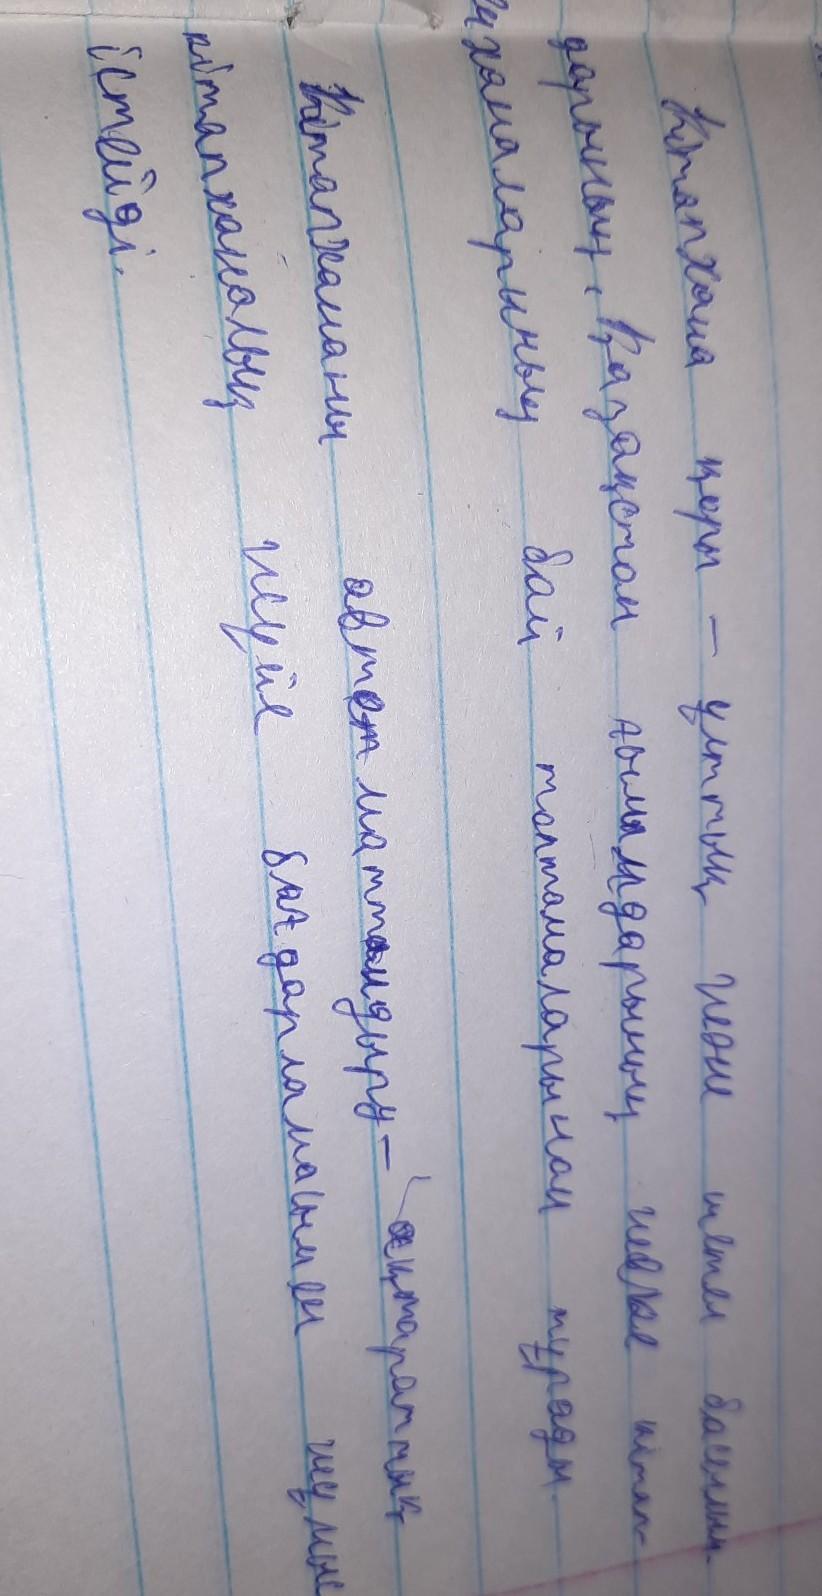 Кітапхана қоры – ұлттық және шетел басылым-
дарының, Қазақстан ғалымдарының жеке кітап-
ханаларының бай топтамаларынан тұрады.
Кітапхананы автоматтандыру – ақпараттық
кітапханалық жүйе бағдарламасымен жұмыс
істейді.